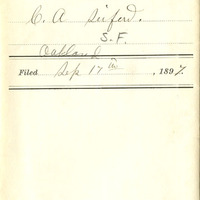 C. A. Siefert.
S-F.
Oakland
Filed Sep 17th, 1897.